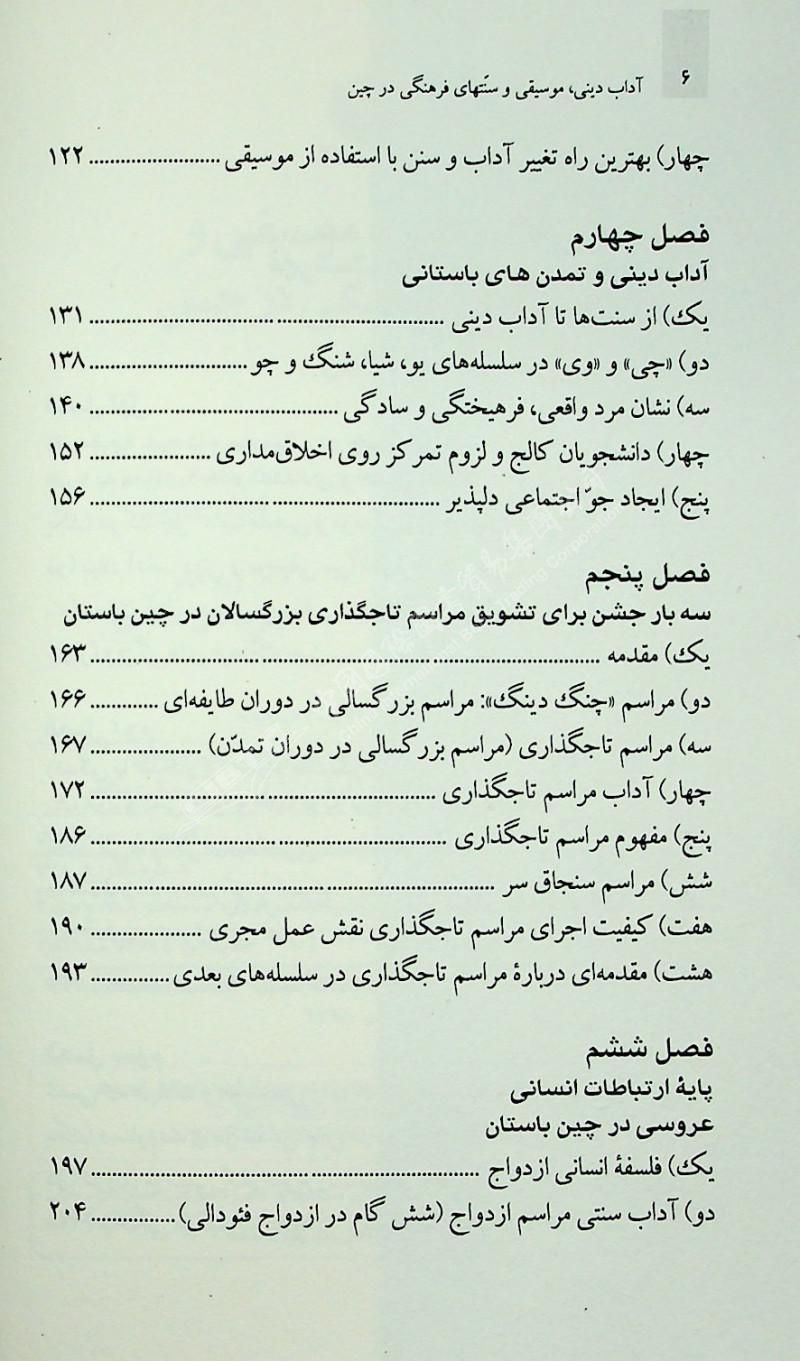 ۶ آداب دینی، موسیقی و سنّتهای فرهنگی در چین
چهار) بهترین راه تغییر آداب و سنن با استفاده از موسیقی ......................... ۱۲۲
فصل چهارم
آداب دینی و تمدن های باستانی
یک) از سنت‌ها تا آداب دینی .................................................................... ۱۳۱
دو) «چی» و «وی» در سلسله‌های یو، شیا، شنگ و چو .............................. ۱۳۸
سه) نشان مرد واقعی، فرهیختگی و سادگی ................................................ ۱۴۰
چهار) دانشجویان کالج و لزوم تمرکز روی اخلاق‌مداری ....................... ۱۵۲
پنج) ایجاد جوّ اجتماعی دلپذیر .................................................................... ۱۵۶
فصل پنجم
سه بار جشن برای تشویق مراسم تاجگذاری بزرگسالان در چین باستان
یک) مقدمه .................................................................................................... ۱۶۳
دو) مراسم «چنگ دینگ»: مراسم بزرگسالی در دوران طایفه‌ای ............. ۱۶۶
سه) مراسم تاجگذاری (مراسم بزرگسالی در دوران تمدّن) ..................... ۱۶۷
چهار) آداب مراسم تاجگذاری .................................................................... ۱۷۲
پنج) مفهوم مراسم تاجگذاری ...................................................................... ۱۸۶
شش) مراسم سنجاق سر ............................................................................... ۱۸۷
هفت) کیفیت اجرای مراسم تاجگذاری نقش عمل مجری ..................... ۱۹۰
هشت) مقدمه‌ای دربارهٔ مراسم تاجگذاری در سلسله‌های بعدی ............... ۱۹۳
فصل ششم
پایهٔ ارتباطات انسانی
عروسی در چین باستان
یک) فلسفهٔ انسانی ازدواج ............................................................................ ۱۹۷
دو) آداب سنتی مراسم ازدواج (شش گام در ازدواج فئودالی) ................ ۲۰۴